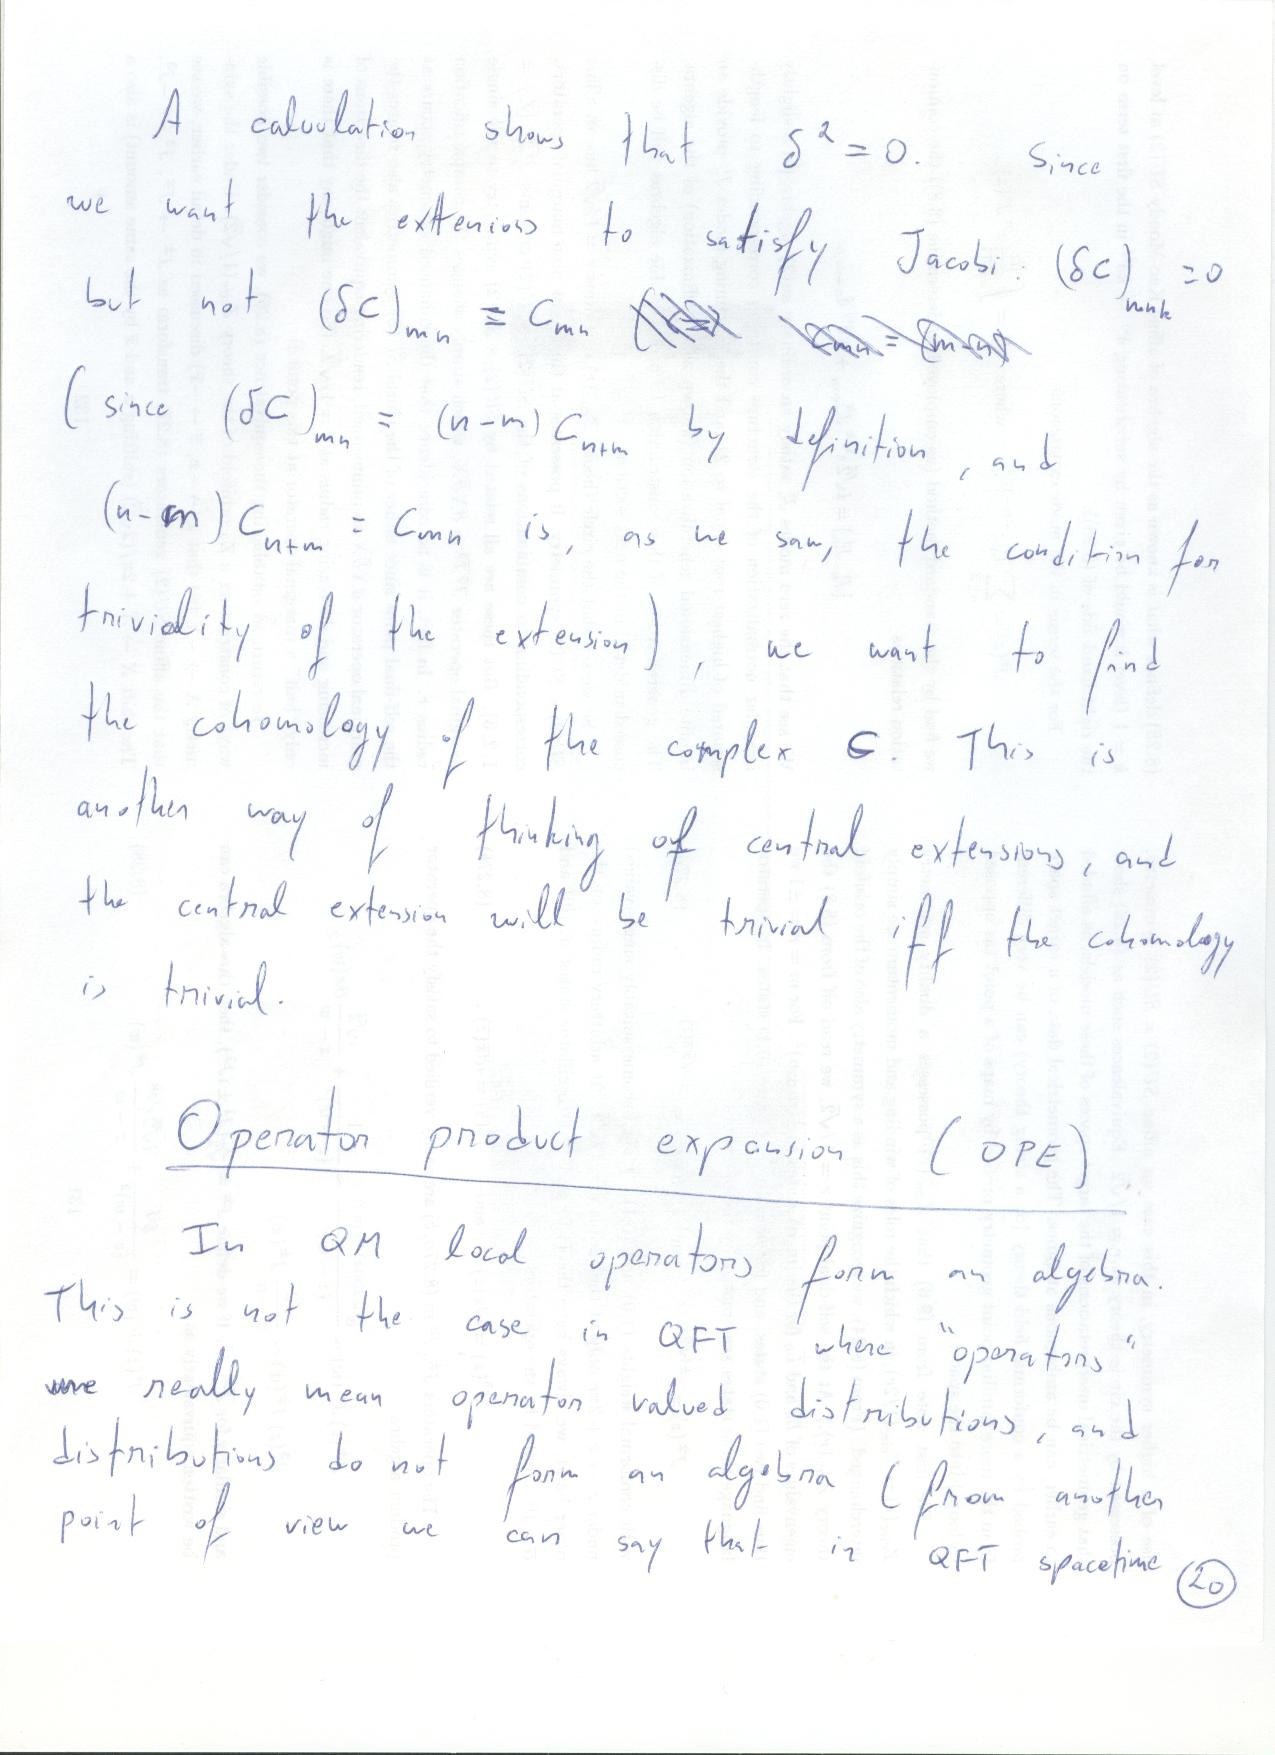 A calculation shows that δ² = 0. Since
we want the extensions to satisfy Jacobi: (δC)ₘₙₖ = 0
but not (δC)ₘₙ = Cₘₙ
(since (δC)ₘₙ = (n-m) Cₙ₊ₘ by definition, and
(n-m) Cₙ₊ₘ = Cₘₙ is, as we saw, the condition for
triviality of the extension), we want to find
the cohomology of the complex C. This is
another way of thinking of central extensions, and
the central extension will be trivial iff the cohomology
is trivial.
Operator product expansion (OPE)
In QM local operators form an algebra.
This is not the case in QFT where "operators"
we really mean operator valued distributions, and
distributions do not form an algebra (from another
point of view we can say that in QFT spacetime
20